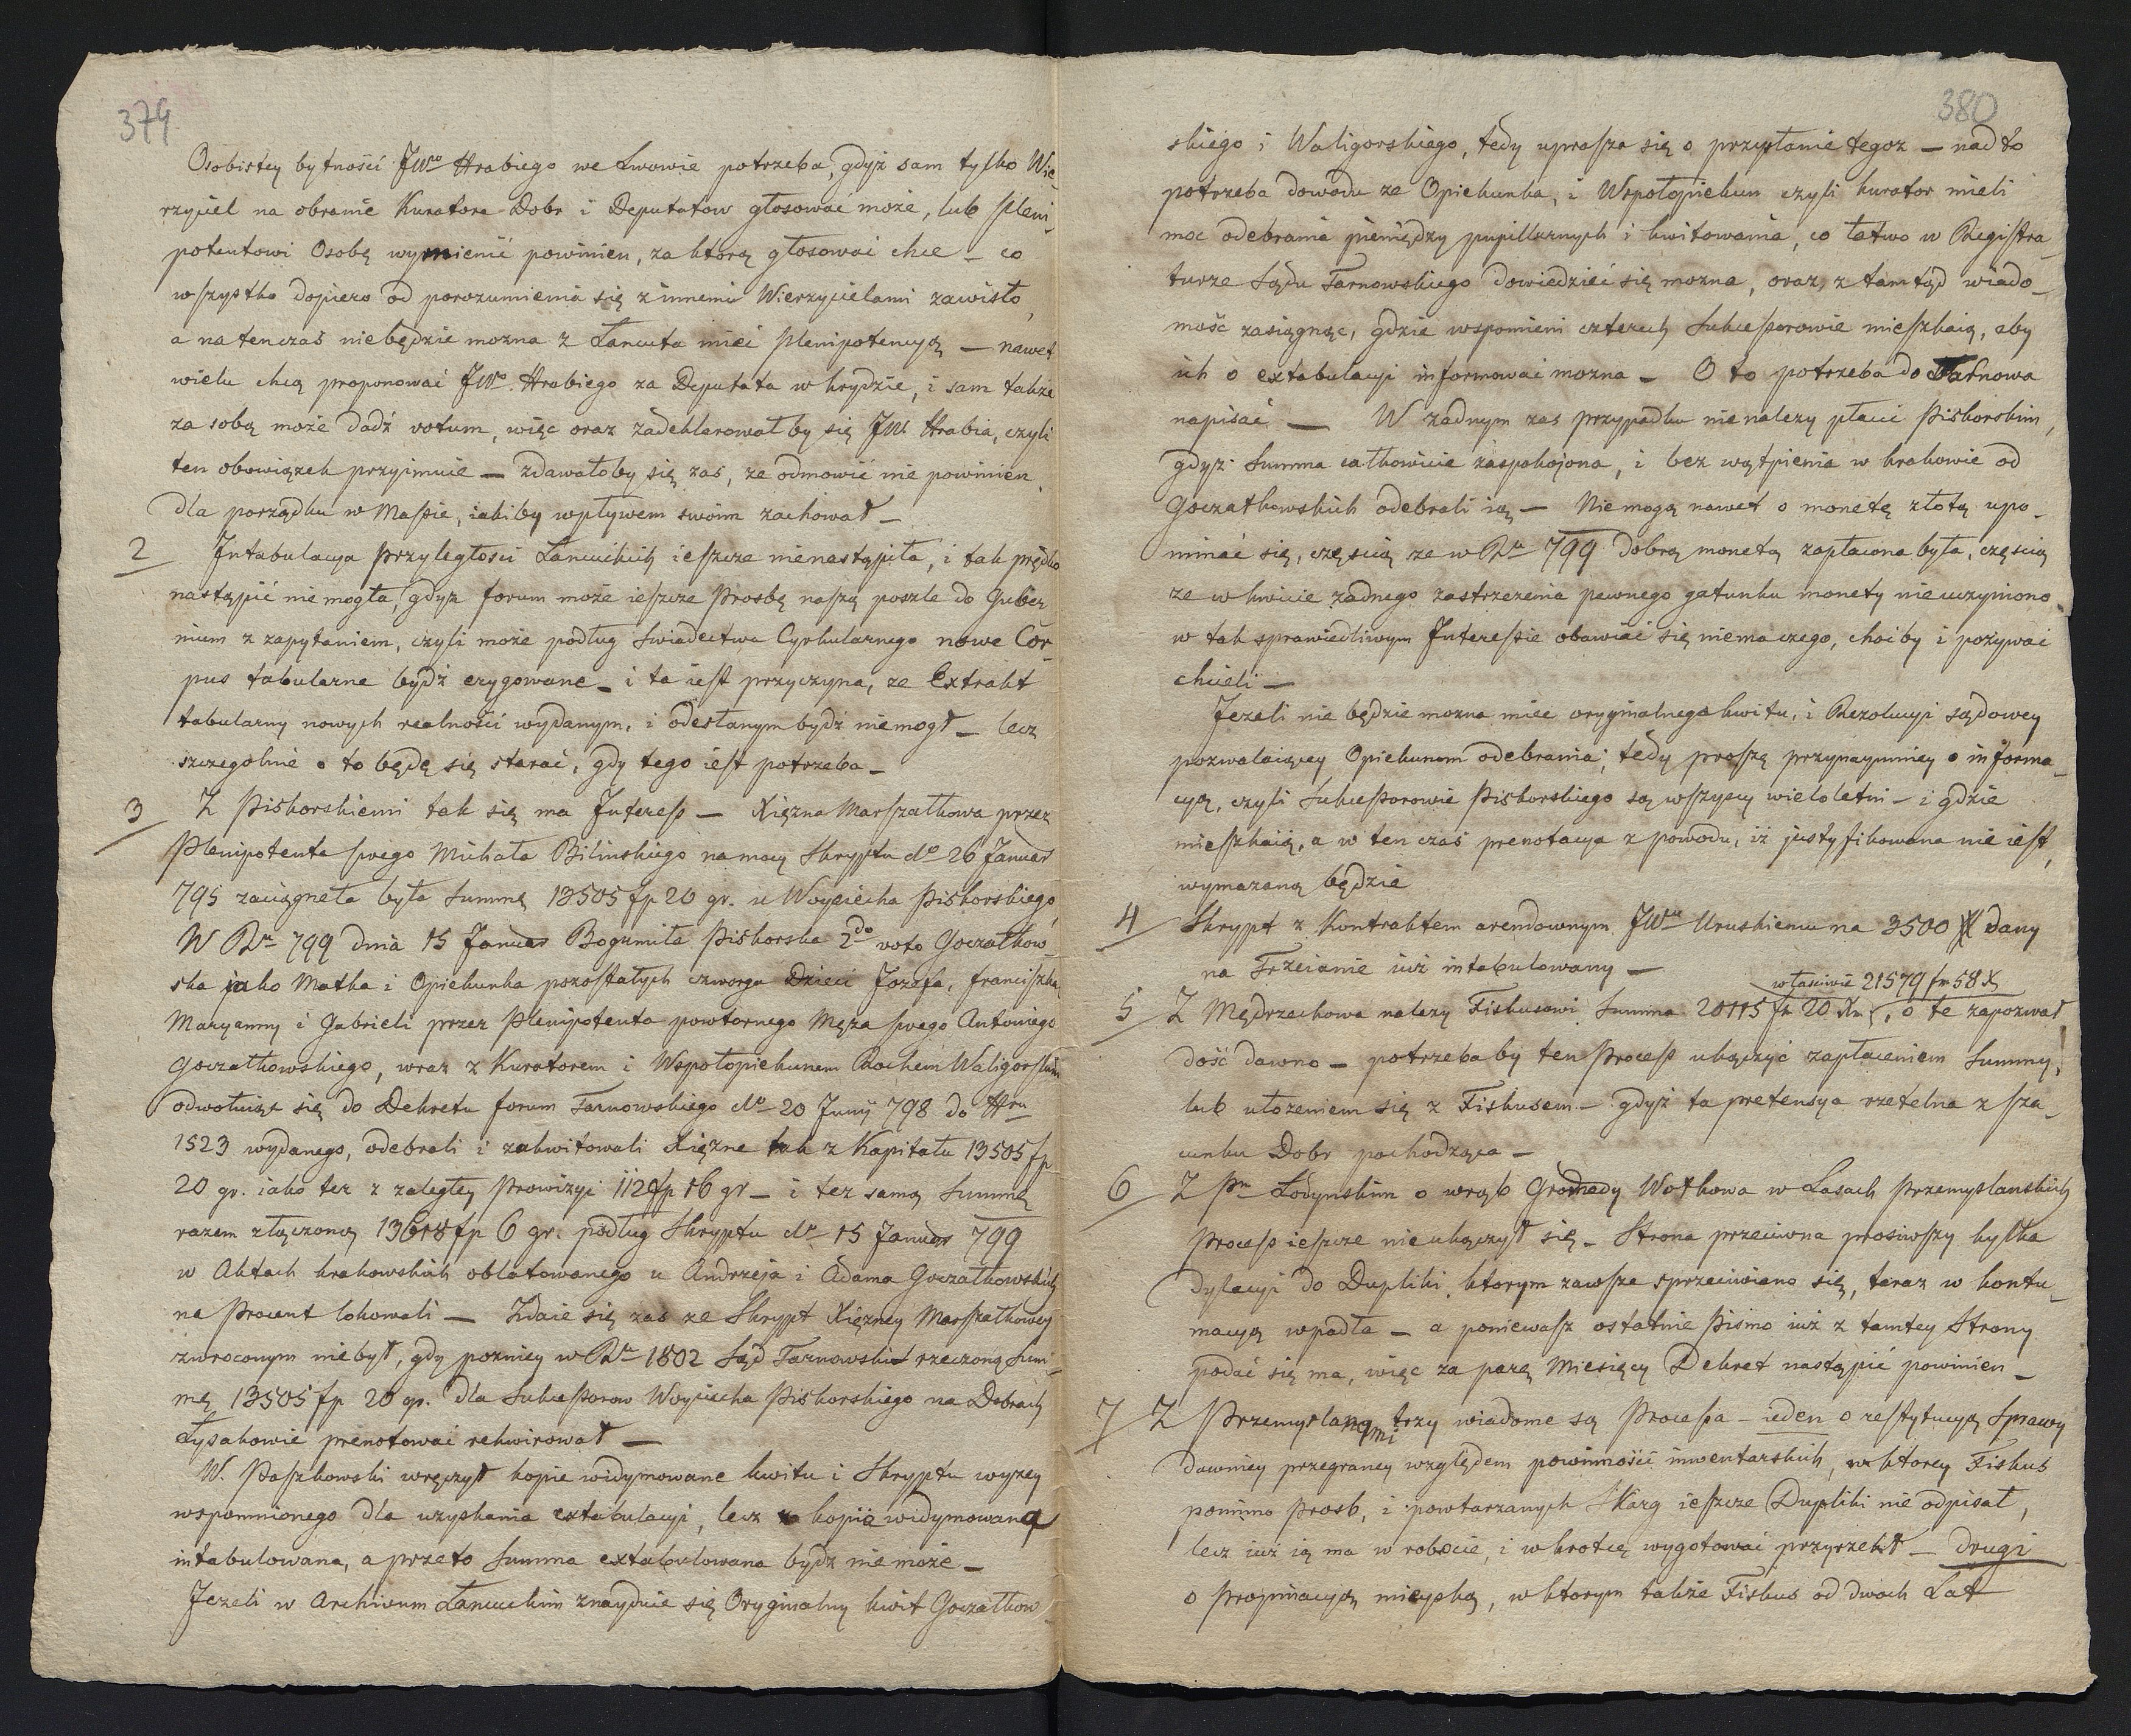 379
Osobistey bytności JWo Hrabiego we Lwowie potrzeba, gdyż sam tylko Wie-
rzyciel na obranie Kuratora Dobr i Deputatow głosować może, lub Pleni-
potentowi Osobę wymienić powinien, za którą głosować chce – co
wszystko dopiero od porozumienia się z innemi Wierzycielami zawisło,
a natenczas niebędzie mozna z Łancuta mieć Plenipotencyą – nawet
wielu chcą proponować JWo Hrabiego za Deputata w krydzie, i sam takze
za sobą może dadź votum, więc oraz zadeklarował by się JW Hrabia, czyli
ten obowiązek przyimuie – zdawałoby się zas, ze odmowić nie powinien,
dla porządku w Massie, iakiby wpływem swoim zachował –
2 Intabulacya Przyległosci Łancuckich ieszcze nienastąpiła, i tak prędko
nastąpić nie mogła, gdyz forum może ieszcze Prosbę naszą poszle do Guber-
nium z zapytaniem, czyli może podług Swiadectwa Cyrkularnego nowe Cor-
pus tabularne bydź erygowane – i ta iest przyczyna, ze Extrakt
tabularny nowych realności wydanym, i odesłanym bydz niemogł – lecz
szczegolnie o to będę się starać, gdy tego iest potrzeba –
3 Z Piskorskiemi tak się ma Interess – Xięzna Marszałkowa przez
Plenipotenta swego Michała Bilinskiego na mocy Skryptu do 26 Januar
795 zaciągneła była Summę 13505 fp 20 gr. u Woyciecha Piskorskiego,
W Ru 799 dnia 15 Januar Bogumiła Piskorska 2do voto Goczałkow
ska jako Matka i Opiekunka pozostałych czworga Dzieci Jozefa, Franciszka,
Maryanny i Gabrieli przez Plenipotenta powtornego Męza swego Antoniego
Goczałkowskiego, wraz z Kuratorem i Wspołopiekunem Rochem Waligorskim
odwołuiąc się do Dekretu forum Tarnowskiego do 20 Junij 798 do Nru
1523 wydanego, odebrali i zakwitowali Xięzne tak z Kapitału 13505 fp
20 gr. iako tez z zaległey Prowizyi 112 fp 16 gr – i tez samą Summę
razem złączoną 13618 fp 6 gr. podług Skryptu do 15 Januar 799
w Aktach krakowskich oblatowanego u Andrzeja i Adama Goczałkowskich
na Procent lokowali – Zdaie się zas ze Skrypt Xięzney Marszałkowey
zwroconym niebył, gdy pozniey w Ru 1802 Sąd Tarnowski rzeczoną Sum-
mę 13505 fp 20 gr. dla Sukcessorow Woyciecha Piskorskiego na Dobrach
Łysakowie prenotować rekwirował –
W. Paszkowski wręczył kopie widymowane kwitu i Skryptu wyzey
wspomnionego dla uzyskania extabulacyi, lecz kopia widymowana
intabulowana, a przeto Summa extabulowana bydz nie może –
Jezeli w Archiwum Łancuckim znayduie się Oryginalny kwit Goczałkow
380
skiego i Waligorskiego, tedy uprasza się o przysłanie tegoz – nadto
potrzeba dowodu ze Opiekunka, i Wspołopiekun czyli kurator mieli
moc odebrania pieniędzy pupillarnych i kwitowania, co łatwo w Registra-
turze Sądu Tarnowskiego dowiedzieć się mozna, oraz z tamtąd wiado-
mość zasiągnąc, gdzie wspomieni czterech Sukcessorowie mieszkaią, aby
ich o extabulacyi informować mozna – O to potrzeba do Tarnowa
napisać – W zadnym zas przypadku nienalezy płacić Piskorskim,
gdyz Summa całkowicie zaspokojona, i bez wątpienia w krakowie od
Goczałkowskich odebrali ią – Niemogą nawet o monetę złotą upo-
minać się, częscią ze w Ru 799 dobrą monetą zapłacona była, częscią
ze w kwicie zadnego zastrzezenia pewnego gatunku monety nieuczyniono
w tak sprawiedliwym Interessie obawiać się niema czego, choćby i pozywać
chcieli –
Jezeli nie będzie mozna miec oryginalnego kwitu, i Rezolucyi sądowey
pozwalaiącey Opiekunom odebrania; tedy proszę przynaymniey o informa-
cyą, czyli Sukcessorowie Piskorskiego są wszyscy wieloletni – i gdzie
mieszkaią, a w ten czas prenotacya z powodu, iż justyfikowana nie iest,
wymazaną będzie
4 Skrypt z Kontraktem arendownym JWu Uruskiemu na 3500 # dany
na Trzcianie iuż intabulowany –
własciwie 21579 fr 58 X
5 Z Mędrzechowa nalezy Fiskusowi Summa 20115 fr 20 Xr, o te zapozwał
dość dawno – potrzeba by ten Process ukączyć zapłaceniem Summy,
lub ułozeniem się z Fiskusem – gdyż ta pretensya rzetelna z sza-
cunku Dobr pochodząca –
6 Z Pm Łodynskim o wrąb Gromady Wołkowa w Lasach Przemyslanskich
Process ieszcze nieukączył się – Strona przeciwna prosiwszy kylka
dylacyi do Dupliki, ktorym zawsze sprzeciwiano się, teraz w kontu-
macyą wpadła – a poniewasz ostatnie Pismo iuż z tamtey Strony
podać się ma, więc za parę Miesięcy Dekret nastąpić powinien –
7 Z Przemyslanami trzy wiadome są Processa – ieden o restytucyą Sprawy
dawniey przegraney względem powinności inwentarskich, w ktorey Fiskus
pomimo Prosb, i powtarzanych Skarg ieszcze Dupliki nie odpisał,
lecz iuż ią ma w robocie, i w krotce wygotować przyrzekł – drugi
o Propinacyą mieyską, w ktorym takze Fiskus od dwoch Lat